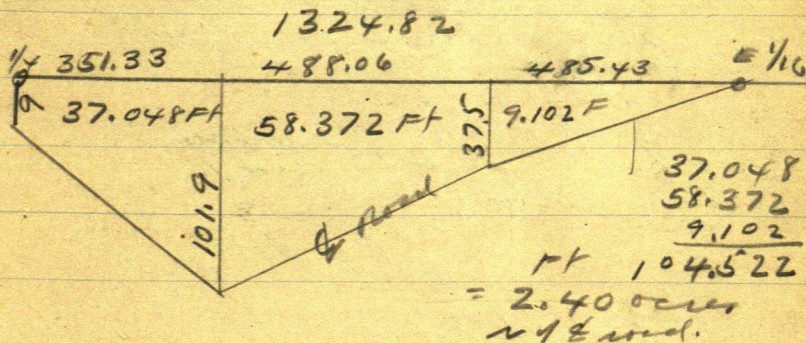 13.24.82
1/4 351.33 488.06 485.43 E 1/16
9 37.048 Ft 58.372 Ft 37.5 9.102 F
101.9
℄ Road
37.048
58.372
9.102
Ft 104.522
= 2.40 acres
N of ℄ road.